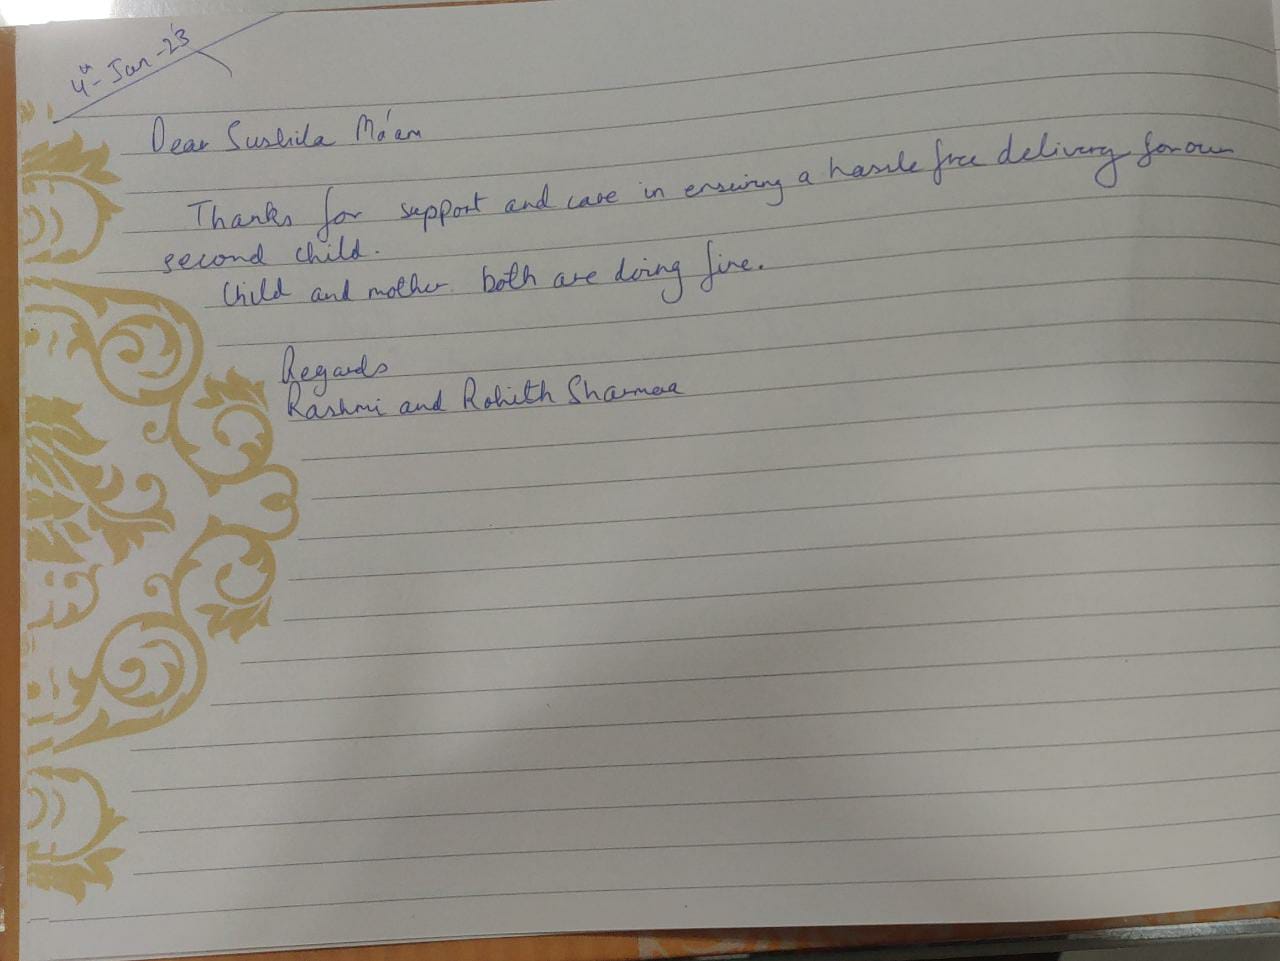 4th - Jan - 23
Dear Sushila Ma'am
Thanks for support and care in ensuring a hassle free delivery for our
second child.
Child and mother both are doing fine.
Regards
Rashmi and Rohith Sharmaa